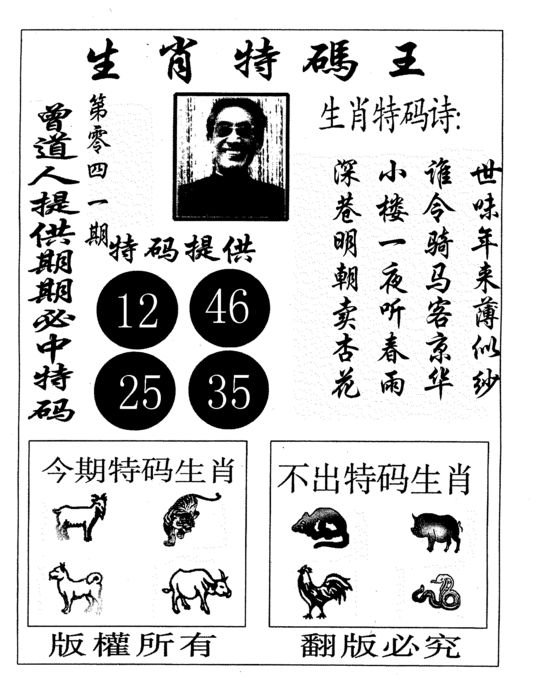 生肖特碼王
第零四一期
曾道人提供期期必中特码
特码提供
12 46
25 35
生肖特码诗:
世味年来薄似纱
谁令骑马客京华
小楼一夜听春雨
深巷明朝卖杏花
今期特码生肖
不出特码生肖
版權所有
翻版必究